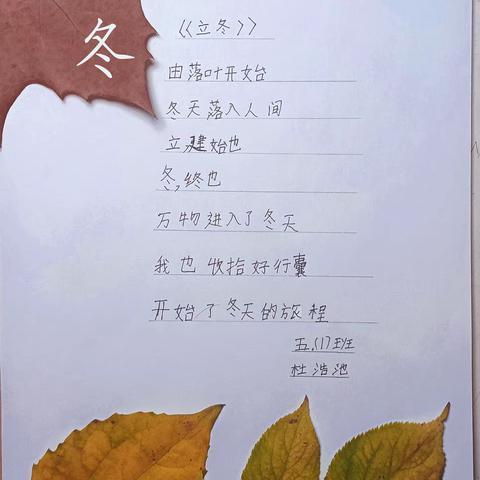 冬
《立冬》
由落叶开始
冬天落入人间
立,建始也
冬,终也
万物进入了冬天
我也收拾好行囊
开始了冬天的旅程
五.(1)班
杜浩池